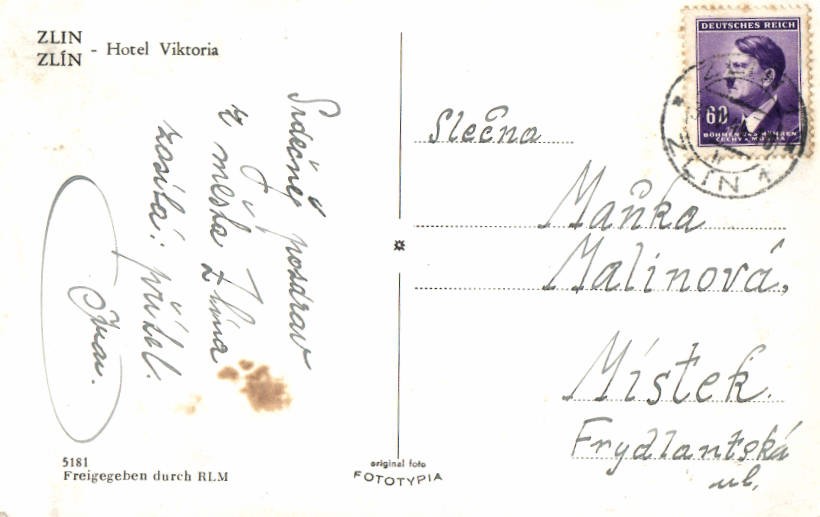 ZLIN
ZLÍN - Hotel Viktoria
Srdečný pozdrav
z města Zlína
zasílá: přítel.
Ivan.
5181
Freigegeben durch RLM
original foto
FOTOTYPIA
DEUTSCHES REICH
60
BÖHMEN UND MÄHREN
ČECHY A MORAVA
ZLÍN 1
Slečna
Mańka
Malinová,
Místek.
Frydlantská
ul.